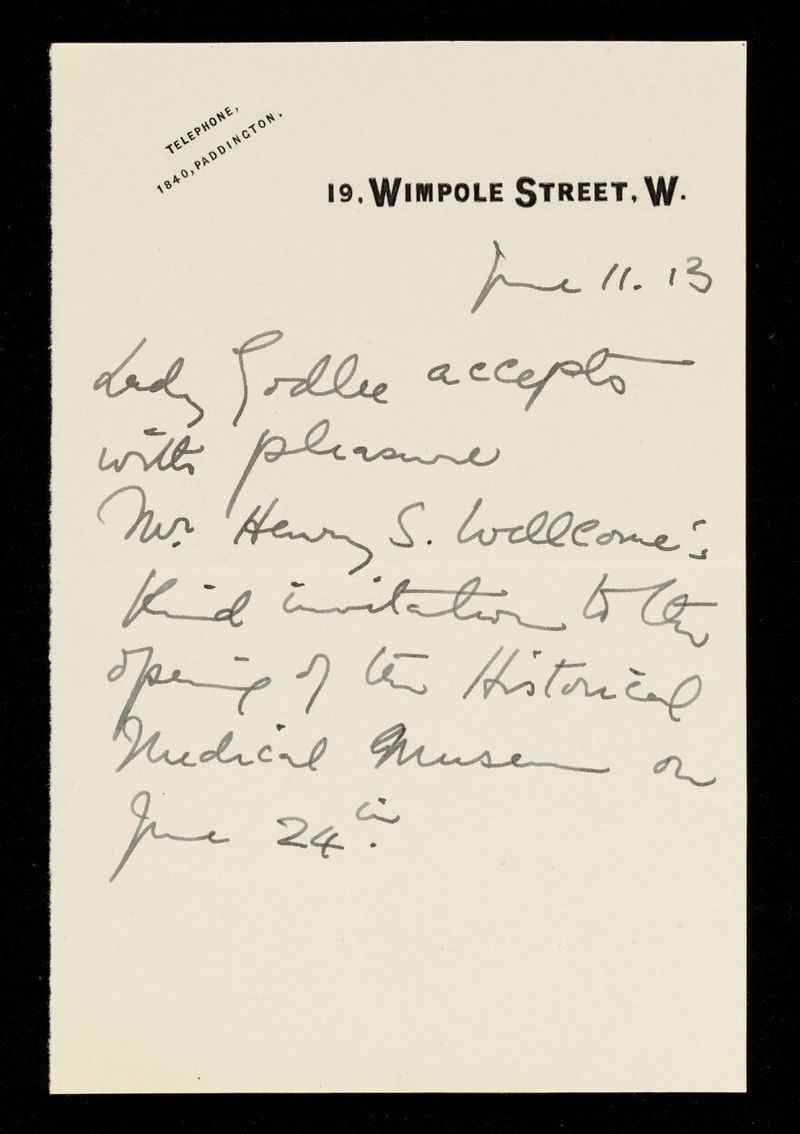 TELEPHONE,
1840, PADDINGTON.
19, WIMPOLE STREET, W.
June 11. 13
Lady Godlee accepts
with pleasure
Mr. Henry S. Wellcome's
Kind invitation to the
opening of the Historical
Medical Museum on
June 24th.